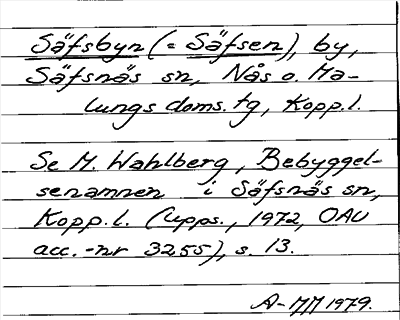 Säfsbyn (= Säfsen), by,
Säfsnäs sn, Nås o. Ma-
lungs doms. tg, Kopp.l.
Se M. Wahlberg, Bebyggel-
senamnen i Säfsnäs sn,
Kopp.l. (Upps., 1972, OAU
acc.-nr 3255), s. 13.
A-MM 1979.